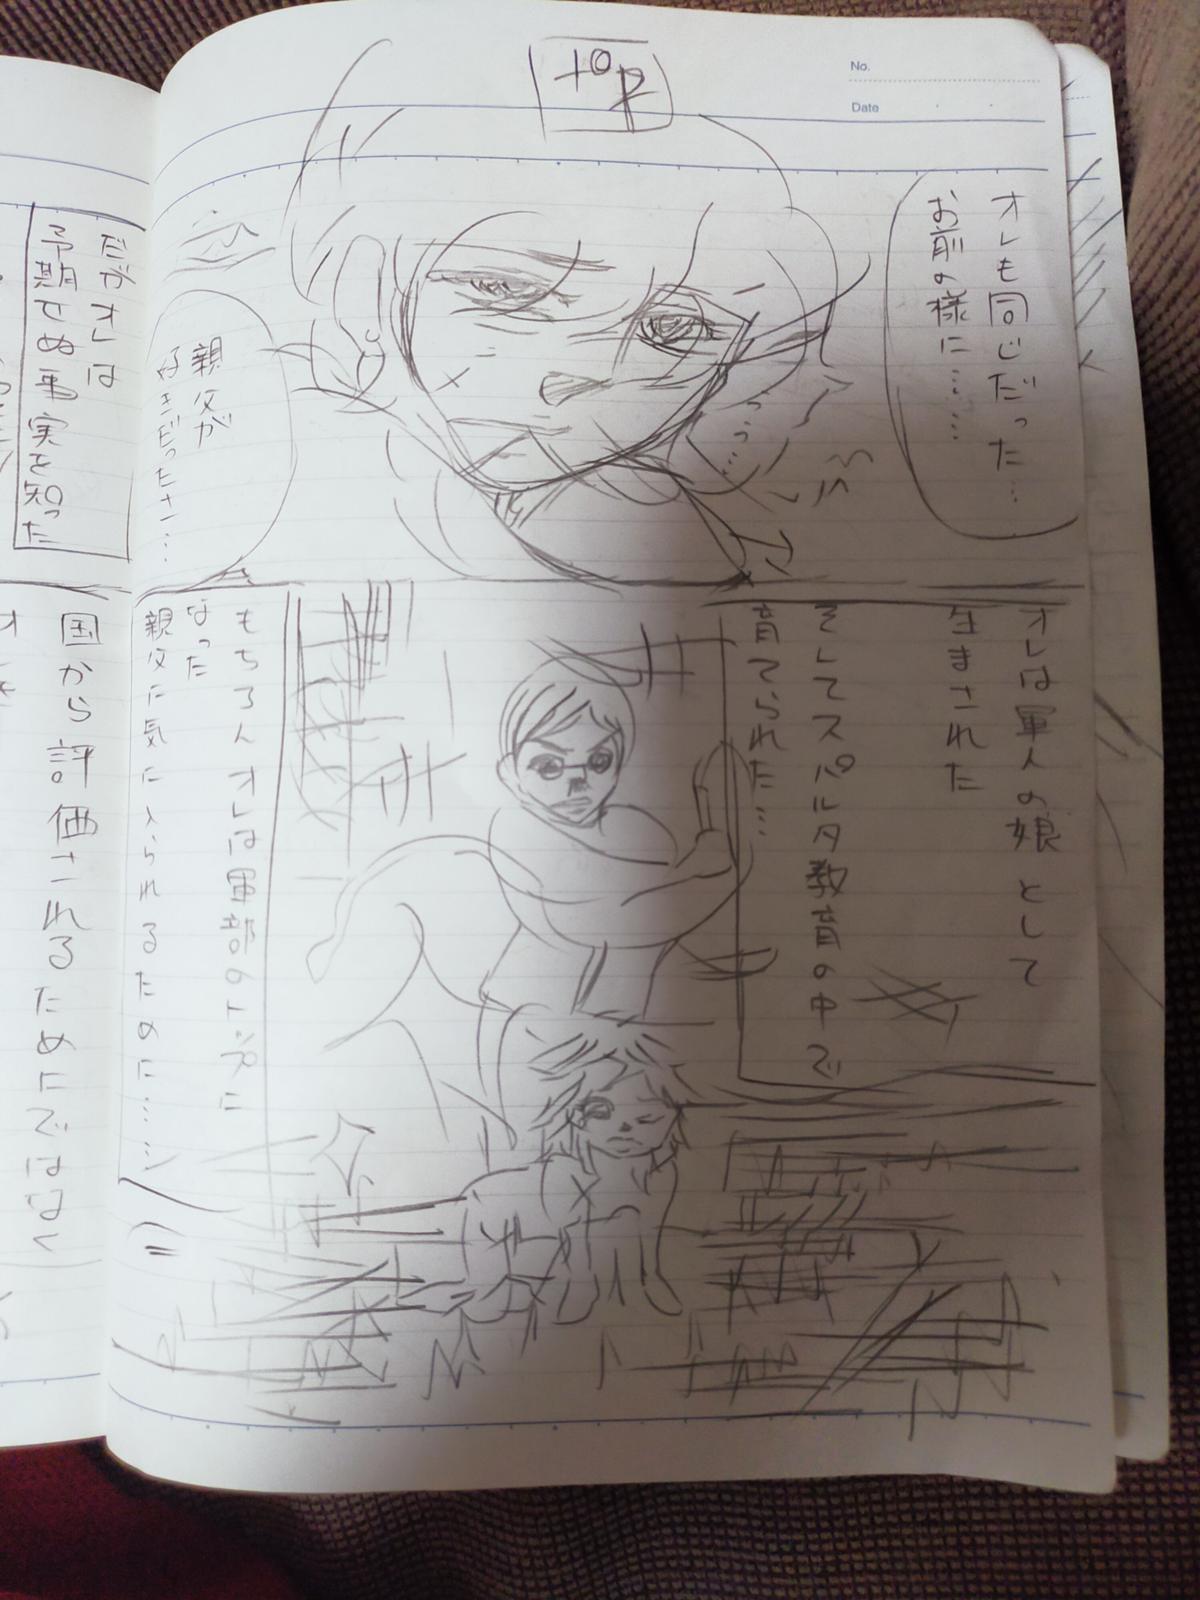 top
No.
Date
オレも同じだった…
お前の様に……
うっ…
親父が
好きだったさ…
オレは軍人の娘として
生まされた
そしてスパルタ教育の中で
育てられた…
もちろんオレは軍部のトップに
なった
親父に気に入られるために…
だがオレは
予期せぬ事実を知った
国から評価されるためにではなく